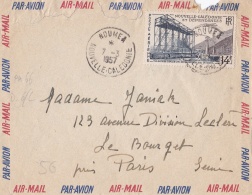 PAR AVION AIR-MAIL PAR AVION AIR-MAIL PAR AVION
NOUMEA
7-
1957
NOUVELLE-CALEDONIE
NOUVELLE-CALEDONIE
ET DEPENDANCES
RF
14F
Madame Janiak
123 avenue Division Leclerc
Le Bourget
près Paris Seine
56
AIR-MAIL
PAR AVION
AIR-MAIL
PAR AVION
AIR-MAIL
PAR AVION